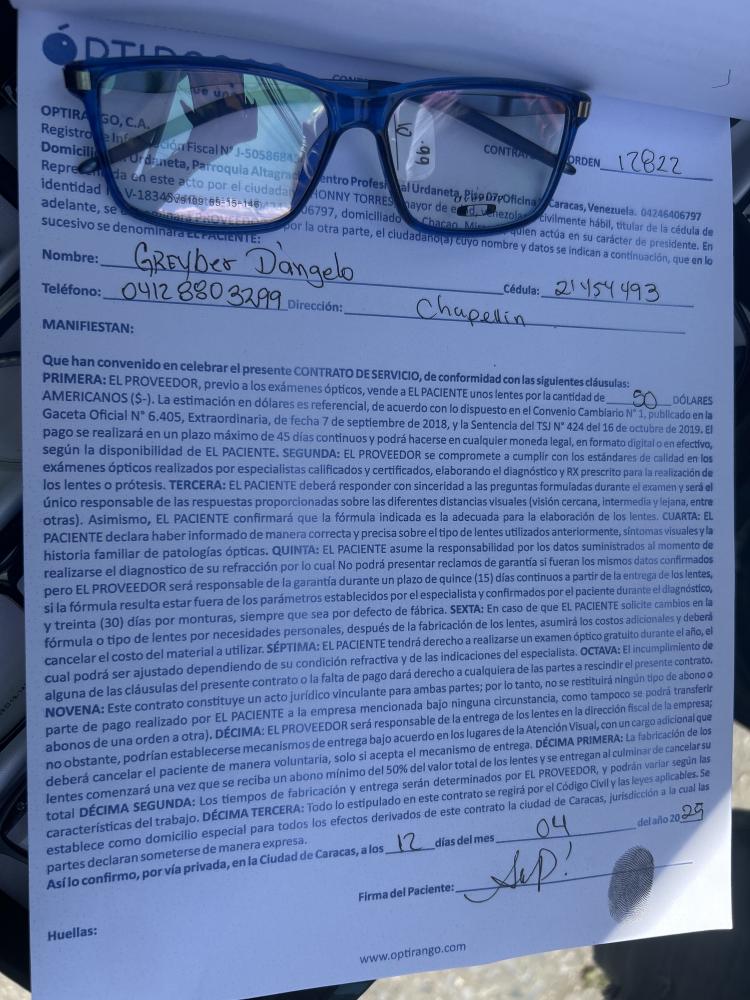 OPTIRANGO
OPTIRANGO, C.A.
CONTRATO ORDEN 12822
Registro de Información Fiscal N° J-5058684
Domicilio Urdaneta, Parroquia Altagracia Centro Profesional Urdaneta, Piso 07 Oficina Caracas, Venezuela. 04246406797
en este acto por el ciudadano HONNY TORRES mayor de edad, venezolano civilmente hábil, titular de la cédula de
identidad V-1834 6797, domiciliado Chacao, quien actúa en su carácter de presidente. En
adelante, se denominará EL PROVEEDOR por la otra parte, el ciudadano(a) cuyo nombre y datos se indican a continuación, que en lo
sucesivo se denominará EL PACIENTE:
.99
Nombre: GREYber D'angelo Cédula: 21454493
Teléfono: 04128803299 Dirección: Chapellin
MANIFIESTAN:
Que han convenido en celebrar el presente CONTRATO DE SERVICIO, de conformidad con las siguientes cláusulas:
PRIMERA: EL PROVEEDOR, previo a los exámenes ópticos, vende a EL PACIENTE unos lentes por la cantidad de 50 DÓLARES
AMERICANOS ($-). La estimación en dólares es referencial, de acuerdo con lo dispuesto en el Convenio Cambiario N° 1, publicado en la
Gaceta Oficial N° 6.405, Extraordinaria, de fecha 7 de septiembre de 2018, y la Sentencia del TSJ N° 424 del 16 de octubre de 2019. El
pago se realizará en un plazo máximo de 45 días continuos y podrá hacerse en cualquier moneda legal, en formato digital o en efectivo,
según la disponibilidad de EL PACIENTE. SEGUNDA: EL PROVEEDOR se compromete a cumplir con los estándares de calidad en los
exámenes ópticos realizados por especialistas calificados y certificados, elaborando el diagnóstico y RX prescrito para la realización de
los lentes o prótesis. TERCERA: EL PACIENTE deberá responder con sinceridad a las preguntas formuladas durante el examen y será el
único responsable de las respuestas proporcionadas sobre las diferentes distancias visuales (visión cercana, intermedia y lejana, entre
otras). Asimismo, EL PACIENTE confirmará que la fórmula indicada es la adecuada para la elaboración de los lentes. CUARTA: EL
PACIENTE declara haber informado de manera correcta y precisa sobre el tipo de lentes utilizados anteriormente, síntomas visuales y la
historia familiar de patologías ópticas. QUINTA: EL PACIENTE asume la responsabilidad por los datos suministrados al momento de
realizarse el diagnostico de su refracción por lo cual No podrá presentar reclamos de garantía si fueran los mismos datos confirmados
pero EL PROVEEDOR será responsable de la garantía durante un plazo de quince (15) días continuos a partir de la entrega de los lentes,
si la fórmula resulta estar fuera de los parámetros establecidos por el especialista y confirmados por el paciente durante el diagnóstico,
y treinta (30) días por monturas, siempre que sea por defecto de fábrica. SEXTA: En caso de que EL PACIENTE solicite cambios en la
fórmula o tipo de lentes por necesidades personales, después de la fabricación de los lentes, asumirá los costos adicionales y deberá
cancelar el costo del material a utilizar. SÉPTIMA: EL PACIENTE tendrá derecho a realizarse un examen óptico gratuito durante el año, el
cual podrá ser ajustado dependiendo de su condición refractiva y de las indicaciones del especialista. OCTAVA: El incumplimiento de
alguna de las cláusulas del presente contrato o la falta de pago dará derecho a cualquiera de las partes a rescindir el presente contrato.
NOVENA: Este contrato constituye un acto jurídico vinculante para ambas partes; por lo tanto, no se restituirá ningún tipo de abono o
parte de pago realizado por EL PACIENTE a la empresa mencionada bajo ninguna circunstancia, como tampoco se podrá transferir
abonos de una orden a otra). DÉCIMA: EL PROVEEDOR será responsable de la entrega de los lentes en la dirección fiscal de la empresa;
no obstante, podrían establecerse mecanismos de entrega bajo acuerdo en los lugares de la Atención Visual, con un cargo adicional que
deberá cancelar el paciente de manera voluntaria, solo si acepta el mecanismo de entrega. DÉCIMA PRIMERA: La fabricación de los
lentes comenzará una vez que se reciba un abono mínimo del 50% del valor total de los lentes y se entregan al culminar de cancelar su
total DÉCIMA SEGUNDA: Los tiempos de fabricación y entrega serán determinados por EL PROVEEDOR, y podrán variar según las
características del trabajo. DÉCIMA TERCERA: Todo lo estipulado en este contrato se regirá por el Código Civil y las leyes aplicables. Se
establece como domicilio especial para todos los efectos derivados de este contrato la ciudad de Caracas, jurisdicción a la cual las
partes declaran someterse de manera expresa.
Así lo confirmo, por vía privada, en la Ciudad de Caracas, a los 12 días del mes 04 del año 2025
Firma del Paciente:
Huellas:
www.optirango.com